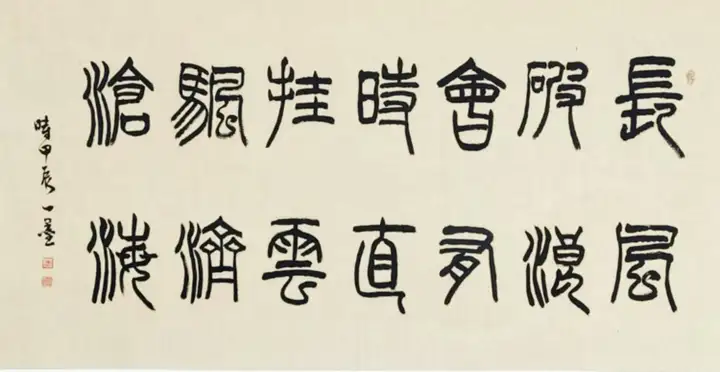 長風
破浪
會有
時直
挂雲
颿濟
滄海
時甲辰一墨